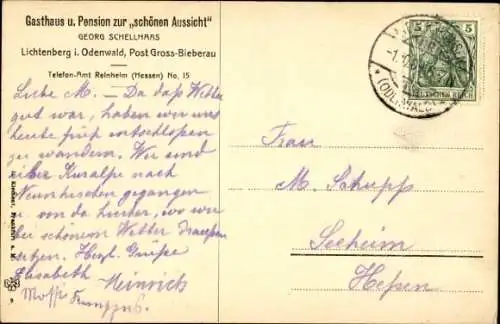 Gasthaus u. Pension zur „schönen Aussicht"
GEORG SCHELLHAAS
Lichtenberg i. Odenwald, Post Gross-Bieberau
Telefon-Amt Reinheim (Hessen) No. 15
Liebe M. - Da das Wetter
gut war, haben wir uns
heute früh entschlossen
zu wandern. Wir sind
über Kuralpe nach
Neunkirchen gegangen
u. von da hierher, wo wir
bei schönem Wetter draußen
sitzen. Herzl. Grüße
Elisabeth Heinrich
Frau
M. Schupp
Seeheim
Hessen
5 5
DEUTSCHES REICH
(ODENWALD)